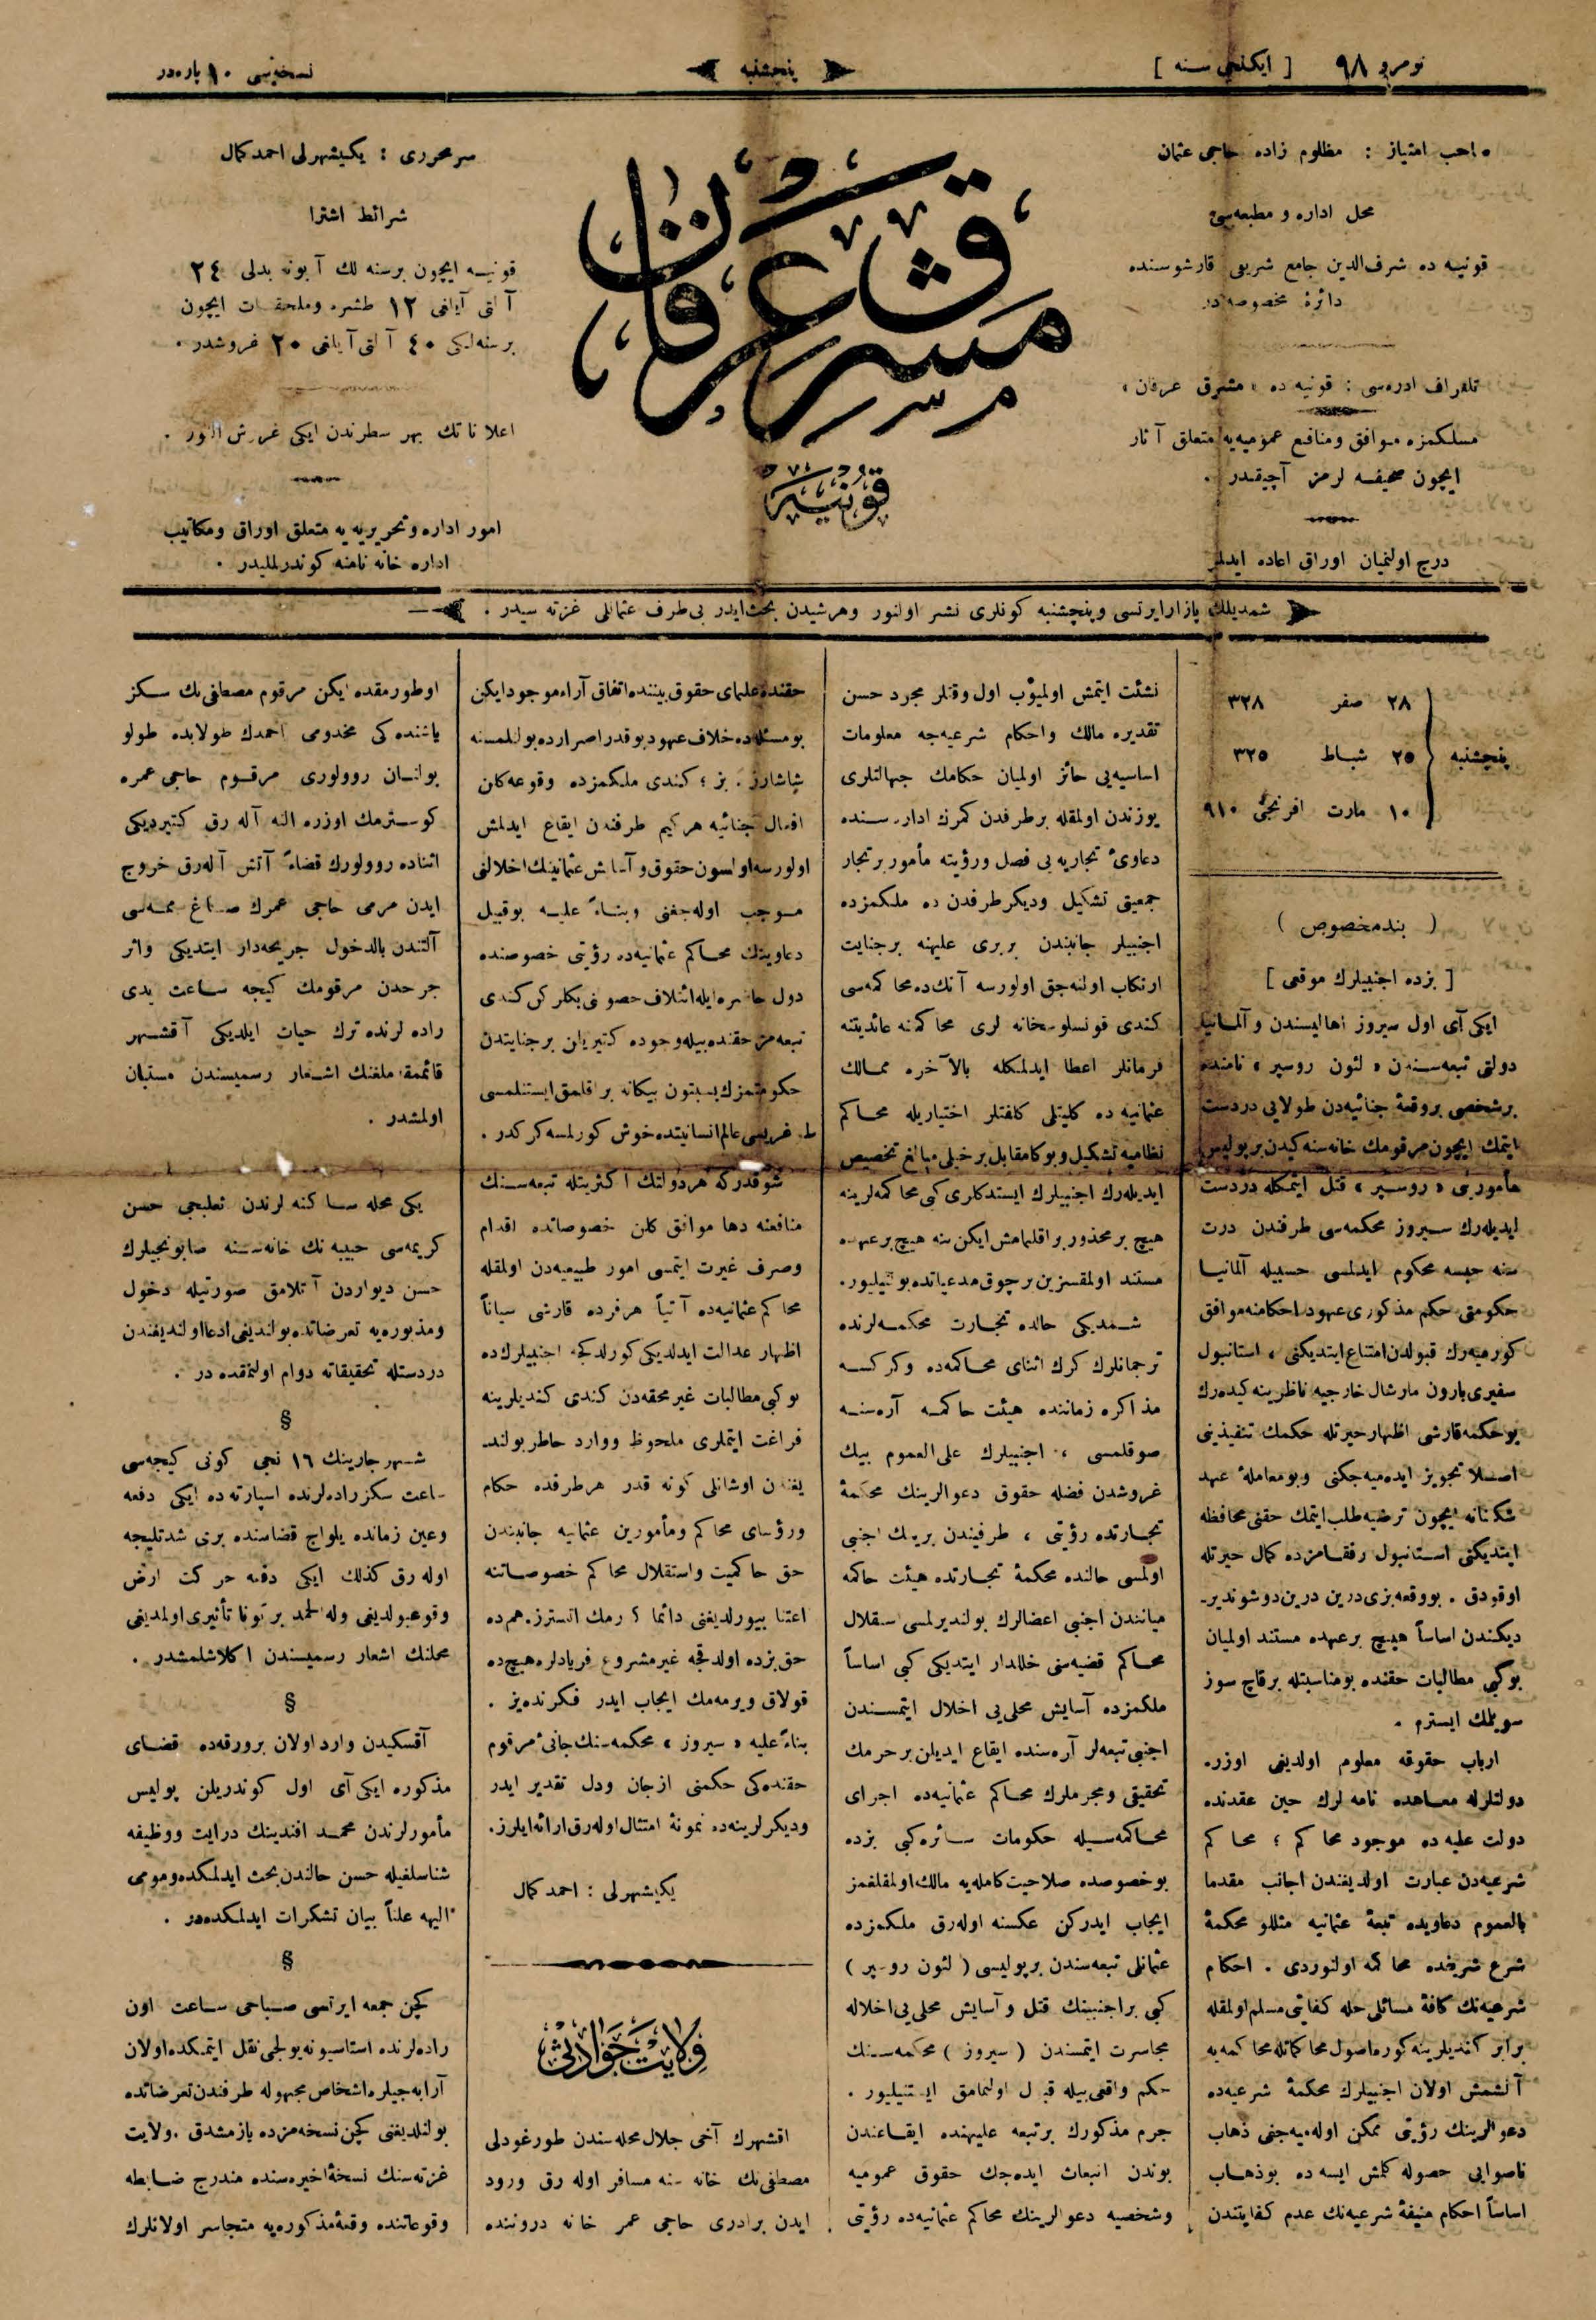 نومرو ٩٨
[ ایكنجی سنه ]
پنجشنبه
نسخه‌سی ١٠ پاره‌در
صاحب امتیاز : مظلوم زاده حاجی عثمان
محل اداره و مطبعه‌سی
قونیه ده شرف‌الدین جامع شریفی قارشوسنده
دائرهٔ مخصوصه‌در
تلغراف ادره‌سی : قونیه ده « مشرق عرفان »
مسلكمزه موافق ومنافع عمومیه‌یه متعلق آثار
ایچون صحیفه لرمز آچیقدر .
درج اولنمیان اوراق اعاده ایدلمز
مشرق عرفان
قونیه
سرمحرری : یكیشهرلی احمد كمال
شرائط اشترا
قونیه ایچون برسنه لك آبونه بدلی ٢٤
آلتی آیلغی ١٢ طشره وملحقات ایچون
برسنه‌لكی ٤٠ آلتی آیلغی ٢٠ غروشدر .
اعلاناتك بهر سطرندن ایكی غروش آلنور .
امور اداره و تحریریه یه متعلق اوراق ومكاتیب
اداره خانه نامنه كوندرلملیدر .
شمدیلك پازارایرتسی و پنچشنبه كونلری نشر اولنور وهرشیدن بحث‌ایدر بی‌طرف عثمانلی غزته سیدر .
پنچشنبه
٢٨ صفر ٣٢٨
٢٥ شباط ٣٢٥
١٠ مارت افرنجی ٩١٠
( بند مخصوص )
[ بزده اجنبیلرك موقعی ]
ایكی آی اول سیروز اهالیسندن و آلمانیا
دولتی تبعه‌سندن « لئون روسپر » نامنده
برشخصی بروقعهٔ جنائیه‌دن طولایی دردست
ایتمك ایچون مرقومك خانه‌سنه كیدن برپولیس
مأمورینی « روسپر » قتل ایتمكله دردست
ایدیله‌رك سیروز محكمه‌سی طرفندن درت
سنه حبسه محكوم ایدلمسی حسبیله آلمانیا
حكومتی حكم مذكوری عهود احكامنه موافق
كورمیه‌رك قبولدن امتناع ایتدیكنی ، استانبول
سفیری بارون مارشال خارجیه ناظرینه كیده‌رك
بوحكمه قارشی اظهار حیرتله حكمك تنفیذینی
اصلا تجویز ایده‌میه‌جكنی وبومعاملهٔ عهد
شكنانه ایچون ترضیه طلب ایتمك حقنی محافظه
ایتدیكنی استانبول رفقامزده كمال حیرتله
اوقودق . بووقعه بزی درین درین دوشوندیر-
دیكندن اساساً هیچ برعهده مستند اولمیان
بوكبی مطالبات حقنده بومناسبتله برقاچ سوز
سویلمك ایسترم .
ارباب حقوقه معلوم اولدیغی اوزره
دولتلرله معاهده نامه لرك حین عقدنده
دولت علیه ده موجود محاكم ؛ محاكم
شرعیه‌دن عبارت اولدیغندن اجانب مقدما
بالعموم دعاویده تبعهٔ عثمانیه مثللو محكمهٔ
شرع شریفده محاكمه اولنوردی . احكام
شرعیه‌نك كافهٔ مسائلی حله كفایتی مسلم اولمقله
برابر كندیلرینه كوره اصول محاكماتله محاكمه‌یه
آلشمش اولان اجنبیلرك محكمهٔ شرعیه‌ده
دعوالرینك رؤیتی ممكن اوله‌میه‌جغی ذهاب
ناصوابی حصوله كلمش ایسه ده بوذهاب
اساساً احكام منیفهٔ شرعیه‌نك عدم كفایتندن
نشئت ایتمش اولمیوب اول وقتلر مجرد حسن
تقدیره مالك واحكام شرعیه‌جه معلومات
اساسیه‌یی حائز اولمیان حكامك جهالتلری
یوزندن اولمقله برطرفدن كمرك اداره‌سنده
دعاوی تجاریه یی فصل ورؤیته مأمور برتجار
جمعیتی تشكیل ودیكرطرفدن ده ملكمزده
اجنبیلر جانبندن بربری علیهنه برجنایت
ارتكاب اولنه‌جق اولورسه آنك‌ده محاكمه‌سی
كندی قونسلوسخانه لری محاكمنه عائدیتنه
فرمانلر اعطا ایدلمكله بالآخره ممالك
عثمانیه ده كلیتلی كلفتلر اختیاریله محاكم
نظامیه تشكیل وبوكا مقابل برخیلی مبالغ تخصیص
ایدیله‌رك اجنبیلرك ایستدكلری كبی محاكمه‌لرینه
هیچ برمحذور براقلمامش ایكن ینه هیچ برعهده
مستند اولمقسزین برچوق مدعیاتده بولنیلیور .
شمدیكی حالده تجارت محكمه‌لرنده
ترجمانلرك كرك اثنای محاكمه‌ده وكركسه
مذاكره زماننده هیئت حاكمه آره‌سنه
صوقلمسی ، اجنبیلرك علی‌العموم بیك
غروشدن فضله حقوق دعوالرینك محكمهٔ
تجارتده رؤیتی ، طرفیندن برینك اجنبی
اولمسی حالنده محكمهٔ تجارتده هیئت حاكمه
میانندن اجنبی اعضالرك بولندیرلمسی استقلال
محاكم قضیه‌سنی خللدار ایتدیكی كبی اساساً
ملكمزده آسایش محلی‌یی اخلال ایتمسندن
اجنبی تبعه‌لر آره‌سنده ایقاع ایدیلن برجرمك
تحقیقی ومجرملرك محاكم عثمانیه‌ده اجرای
محاكمه‌سیله حكومات سائره كبی بزده
بوخصوصده صلاحیت كامله‌یه مالك اولمقلغمز
ایجاب ایدركن عكسنه اوله‌رق ملكمزده
عثمانلی تبعه‌سندن برپولیسی ( لئون روسپر )
كبی براجنبینك قتل و آسایش محلی‌یی اخلاله
مجاسرت ایتمسندن ( سیروز ) محكمه‌سنك
حكم واقعی بیله قبول اولنمامق ایستنیلیور .
جرم مذكورك برتبعه علیهنده ایقاعندن
بوندن انبعاث ایده‌جك حقوق عمومیه
وشخصیه دعوالرینك محاكم عثمانیه‌ده رؤیتی
حقنده علمای حقوق بیننده اتفاق آراء موجود ایكن
بومسئله‌ده خلاف عهود بوقدر اصرارده بولنلمسنه
شاشارز . بز ؛ كندی ملكمزده وقوعه‌كلن
افعال جنائیه هركیم طرفندن ایقاع ایدلمش
اولورسه اولسون حقوق و آسایش عثمانینك اخلالنی
موجب اوله‌جغنی وبناءً علیه بوقبیل
دعاوینك محاكم عثمانیه‌ده رؤیتی خصوصنده
دول حاضره ایله ائتلاف حصولنی بكلركن كندی
تبعه‌مز حقنده بیله وجوده كتیریلن برجنایتدن
حكومتمزك بسبتون بیكانه براقلمق ایستنلمسی
غریبی عالم انسانیتده خوش كورلمسه كركدر .
شوقدركه هردولتك اكثریتله تبعه‌سنك
منافعنه دها موافق كلن خصوصاتده اقدام
وصرف غیرت ایتمسی امور طبیعیه‌دن اولمقله
محاكم عثمانیه‌ده آتیاً هرفرده قارشی سیاناً
اظهار عدالت ایدلدیكی كورلدكجه اجنبیلرك ده
بوكبی مطالبات غیرمحقه‌دن كندی كندیلرینه
فراغت ایتملری ملحوظ ووارد خاطر بولند-
یغندن اوشانلی كونه قدر هرطرفده حكام
ورؤسای محاكم ومأمورین عثمانیه جانبندن
حق حاكمیت واستقلال محاكم خصوصاتنه
اعتنا بیورلدیغنی دائما كورمك ایسترز. هم‌ده
حق بزده اولدقجه غیرمشروع فریادلره هیچ ده
قولاق ویرمه‌مك ایجاب ایدر فكرنده‌یز .
بناءً علیه « سیروز » محكمه‌سنك جانی مرقوم
حقنده‌كی حكمنی ازجان ودل تقدیر ایدر
ودیكرلرینه‌ده نمونهٔ امتثال اوله‌رق ارائه ایلرز .
یكیشهرلی : احمد كمال
ولایت حوادثی
اقشهرك آخی جلال محله‌سندن طورغودلی
مصطفی‌نك خانه‌سنه مسافر اوله‌رق ورود
ایدن برادری حاجی عمر خانه دروننده
اوطورمقده ایكن مرقوم مصطفی‌نك سكز
یاشنده كی مخدومی احمدك طولابده طولو
بولنان روولوری مرقوم حاجی عمره
كوسترمك اوزره النه آله‌رق كتیردیكی
اثناده روولورك قضاءً آتش آله‌رق خروج
ایدن مرمی حاجی عمرك صاغ ممه‌سی
آلتندن بالدخول جریحه‌دار ایتدیكی واثر
جرحدن مرقومك كیجه ساعت یدی
راده لرنده ترك حیات ایلدیكی آقشهر
قائممقاملغنك اشعار رسمیسندن مستبان
اولمشدر .
یكی محله ساكنه لرندن نعلبجی حسن
كریمه‌سی حبیبه نك خانه‌سنه صابونجیلرك
حسن دیواردن آتلامق صورتیله دخول
ومذبوره‌یه تعرضاتده بولندیغی ادعا اولندیغندن
دردستله تحقیقاته دوام اولنمقده در .
§
شهر جارینك ١٦ نجی كونی كیجه‌سی
ساعت سكز راده‌لرنده اسپارته ده ایكی دفعه
وعین زمانده یلواج قضاسنده بری شدتلیجه
اوله رق كذلك ایكی دفعه حركت ارض
وقوعبولدیغی ولله الحمد برگونا تأثیری اولمدیغی
محلنك اشعار رسمیسندن اكلاشلمشدر .
§
آقسكیدن وارد اولان برورقه‌ده قضای
مذكوره ایكی آی اول كوندریلن پولیس
مأمورلرندن محمد افندینك درایت ووظیفه
شناسلغیله حسن حالندن بحث ایدلمكده ومومی
الیهه علناً بیان تشكرات ایدلمكده‌در .
§
كچن جمعه ایرتسی صباحی ساعت اون
راده‌لرنده استاسیونه یولجی نقل ایتمكده اولان
آرابه‌جیلره اشخاص مجهوله طرفندن تعرضاتده
بولنلدیغنی كچن نسخه‌مزده یازمشدق . ولایت
غزته‌سنك نسخهٔ اخیره‌سنده مندرج ضابطه
وقوعاتنده وقعهٔ مذكوره‌یه متجاسر اولانلرك